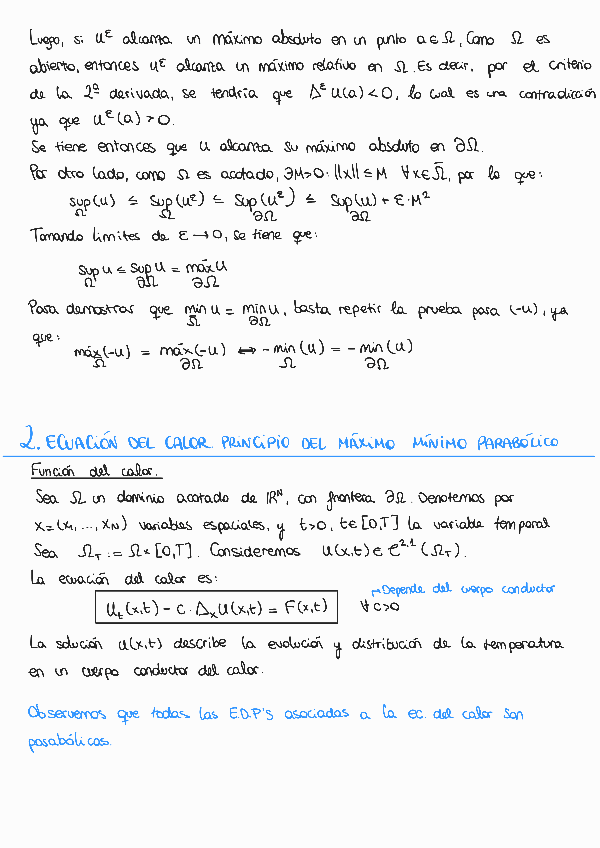 Luego, si u^ε alcanza un máximo absoluto en un punto a ∈ Ω, Como Ω es
abierto, entonces u^ε alcanza un máximo relativo en Ω. Es decir, por el criterio
de la 2ª derivada, se tendría que Δ^ε u(a) < 0, lo cual es una contradicción
ya que u^ε(a) > 0.
Se tiene entonces que u alcanza su máximo absoluto en ∂Ω.
Por otro lado, como Ω es acotado, ∃M>0: ||x|| ≤ M ∀x ∈ Ω̅, por lo que:
sup_Ω(u) ≤ sup_Ω(u^ε) ≤ sup_∂Ω(u^ε) ≤ sup_∂Ω(u) + ε·M²
Tomando límites de ε → 0, se tiene que:
sup_Ω u ≤ sup_∂Ω u = máx_∂Ω u
Para demostrar que min_Ω̅ u = mín_∂Ω u, basta repetir la prueba para (-u), ya
que:
máx_Ω̅(-u) = máx_∂Ω(-u) ⟷ -min_Ω(u) = -min_∂Ω(u)
2. ECUACIÓN DEL CALOR. PRINCIPIO DEL MÁXIMO MÍNIMO PARABÓLICO
Función del calor.
Sea Ω un dominio acotado de ℝ^N, con frontera ∂Ω. Denotemos por
x=(x₁, ..., x_N) variables espaciales, y t>0, t∈[0,T] la variable temporal
Sea Ω_T := Ω×[0,T]. Consideremos u(x,t) ∈ C^{2,1}(Ω_T).
La ecuación del calor es:
→ Depende del cuerpo conductor
u_t(x,t) - c·Δ_x u(x,t) = F(x,t) ∀c>0
La solución u(x,t) describe la evolución y distribución de la temperatura
en un cuerpo conductor del calor.
Observemos que todas las E.D.P's asociadas a la ec. del calor son
parabólicas.